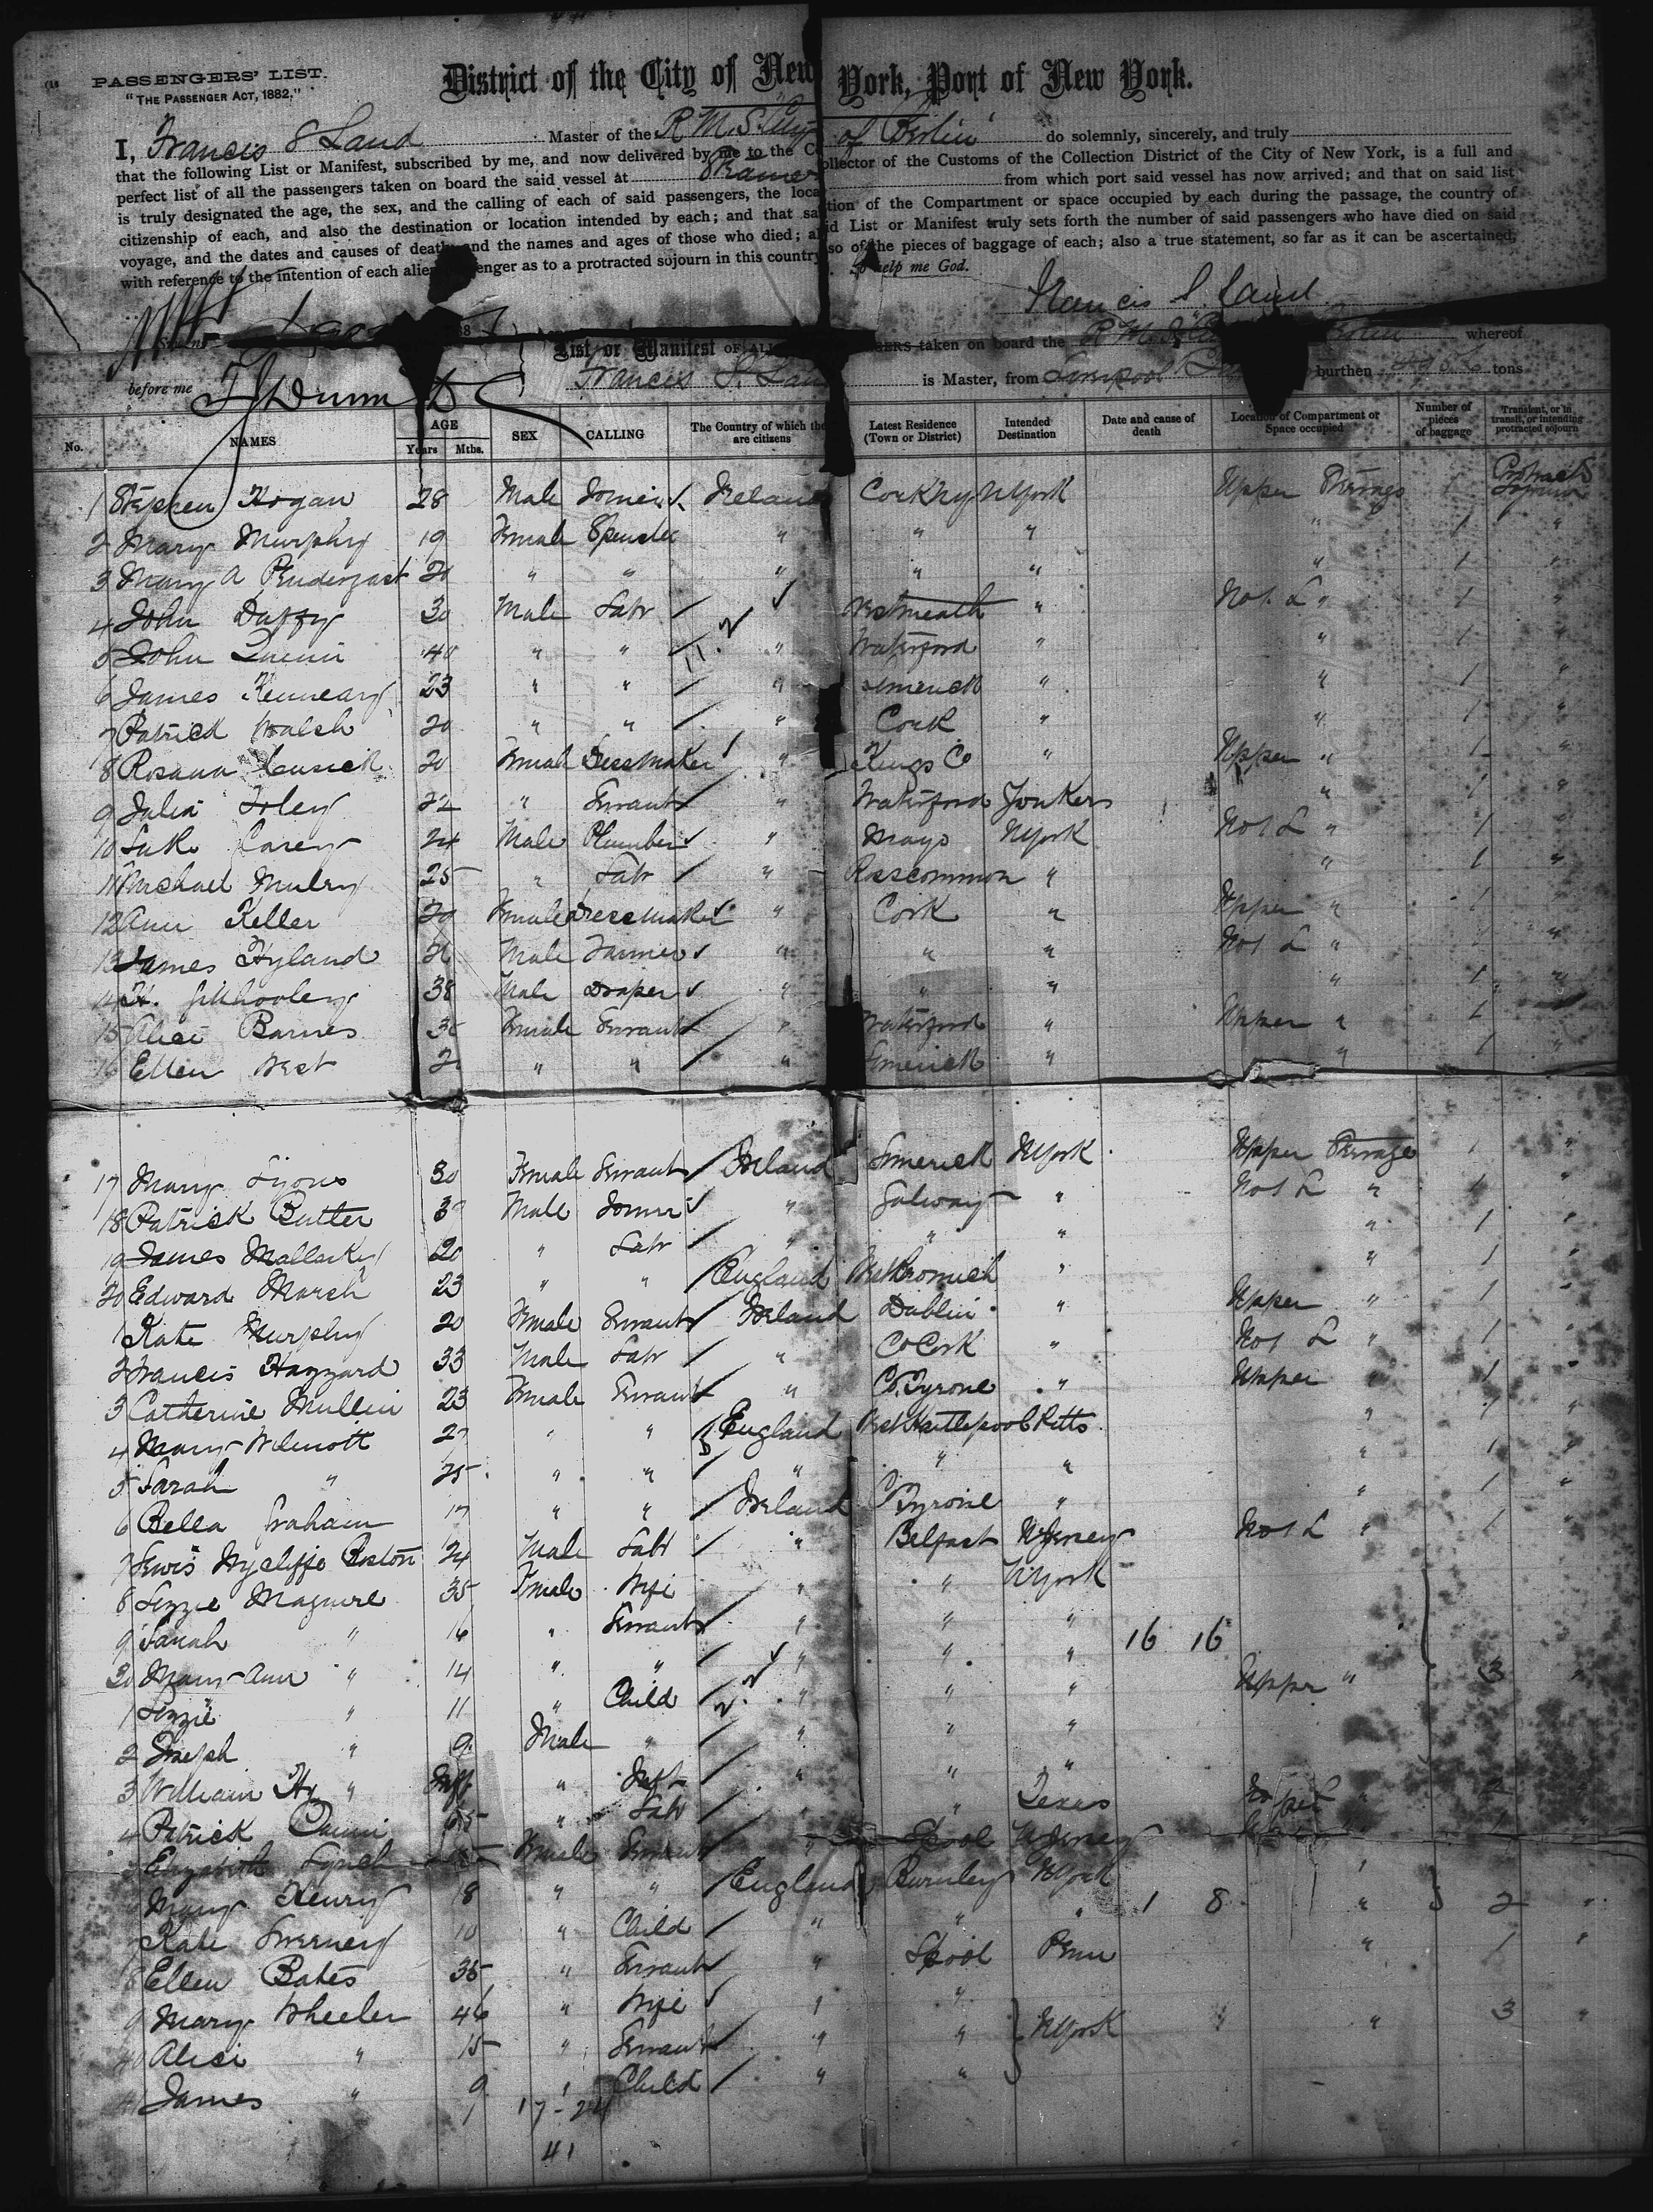 PASSENGERS' LIST.
"THE PASSENGER ACT, 1882."
District of the City of New York, Port of New York.
I, Francis S Land Master of the R.M.S. "City of Berlin" do solemnly, sincerely, and truly
that the following List or Manifest, subscribed by me, and now delivered by me to the Collector of the Customs of the Collection District of the City of New York, is a full and
perfect list of all the passengers taken on board the said vessel at from which port said vessel has now arrived; and that on said list
is truly designated the age, the sex, and the calling of each of said passengers, the location of the Compartment or space occupied by each during the passage, the country of
citizenship of each, and also the destination or location intended by each; and that said List or Manifest truly sets forth the number of said passengers who have died on said
voyage, and the dates and causes of death, and the names and ages of those who died; also of the pieces of baggage of each; also a true statement, so far as it can be ascertained,
with reference to the intention of each alien passenger as to a protracted sojourn in this country. So help me God.
Francis S. Land
List or Manifest OF taken on board the R.M.S. "City Berlin whereof
before me Francis S. Land is Master, from Liverpool burthen tons
No. NAMES AGE Years Mths. SEX CALLING The Country of which they are citizens Latest Residence (Town or District) Intended Destination Date and cause of death Location of Compartment or Space occupied Number of pieces of baggage Transient, or in transit, or intending protracted sojourn
1 Stephen Hogan 28 Male Joiner Ireland Cork NYork Upper Steerage Protracted Sojourn
2 Mary Murphy 19 Female Spinster " " " " 1 "
3 Mary A Prendergast 20 " " " " " " 1 "
4 John Duffy 30 Male Labr Westmeath " No 1 L " 1 "
5 John Quinn 40 " " " Waterford " " 1 "
6 James Kenneary 23 " " " Limerick " " 1 "
7 Patrick Walsh 20 " " " Cork " " 1 "
8 Rosanna Cusick 20 Female Dressmaker " Kings Co " Upper " 1 "
9 Julia Foley 22 " Servant " Waterford Yonkers " 1 "
10 Luke Carey 24 Male Plumber " Mayo NYork No 1 L " 1 "
11 Michael Mulry 25 " Labr " Roscommon " " 1 "
12 Ann Keller 20 Female Dressmaker " Cork " Upper " 1 "
13 James Hyland Male Farmer " " " No 1 L " 1 "
14 H. 38 Male Draper " " " " 1 "
15 Alice Barnes Female Servant " Waterford " Upper " 1
16 Ellen West " " " Limerick " " 1 "
17 Mary Lyons 30 Female Servant Ireland Limerick NYork Upper Steerage 1 "
18 Patrick Butler Male Joiner " Galway " No 1 L " 1 "
19 James Mallarky 20 " Labr " " " " 1 "
20 Edward Marsh 23 " " England West Bromwich " " 1 "
1 Kate Murphy 20 Female Servant Ireland Dublin " Upper " 1 "
2 Francis Hazzard 33 Male Labr " Co Cork " No 1 L " 1 "
3 Catherine Mullin 23 Female Servant " Co. Tyrone " Upper " 1 "
4 Mary Wilmott 27 " " England West Hartlepool Pitts " 1 "
5 Sarah " 25 " " " " " " 1 "
6 Bella Graham 17 " " Ireland C Tyrone " " 1 "
7 Lewis Wycliffe Boston 24 Male Labr " Belfast NJersey No 1 L " 1 "
8 Lizzie Maguire 35 Female Wife " " NYork
9 Sarah " 16 " Servant " " " 16 16
30 Mary Ann " 14 " " " " " Upper " 3 "
1 Lizzie " 11 " Child " " "
2 Joseph " 9 Male " " " "
3 William H. " Inft " Inft " " "
4 Patrick " Labr " " Texas
5 Elizabeth Lynch Female Servant " Lpool NJersey
6 Mary Henry 18 " " England Burnley NYork
7 Kate Sweeney 10 " Child " " " 1 8 " 2 "
8 Ellen Bates 35 " Servant " Lpool Penn " 1 "
9 Mary Wheeler 46 " Wife " " NYork " 3 "
40 Alice " 15 " Servant " "
41 James " 9 " Child " "
17-24
41